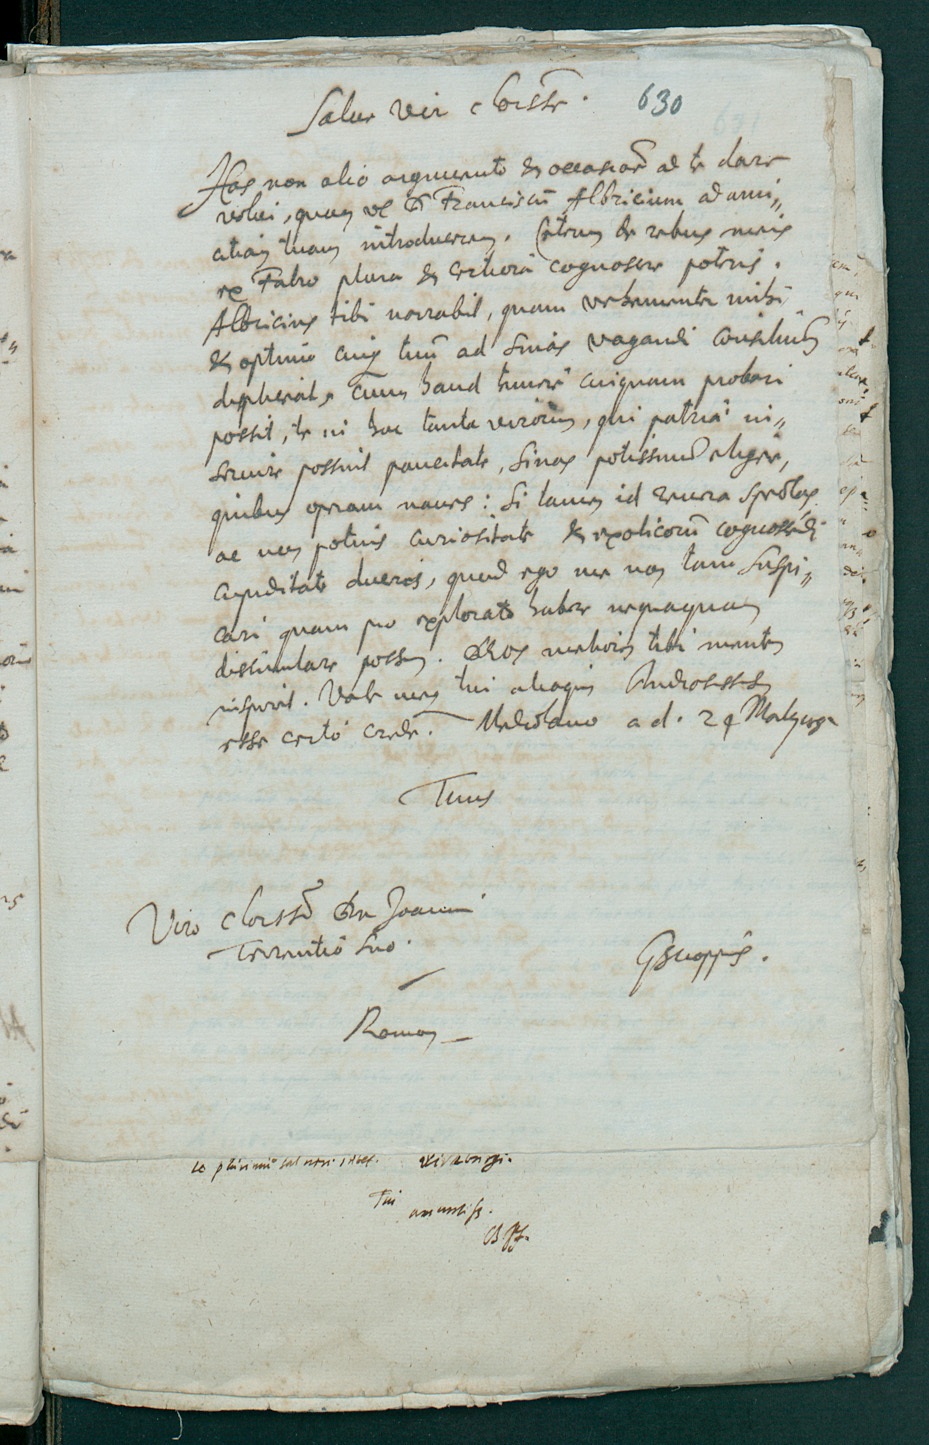 Salve vir clariss̄e. 630
Has non alio argumento & occasionē ad te dare
volui, quam ut D. Franciscū Albricium ad ami„
citiam tuam introducerem. Ceterum de rebus meis
ex Fabro plura & certiora cognoscere poteris.
Albricius tibi narrabit, quam vehementer mihi
& optimo cuiq tuū ad Sinas vagandi consiliū
displiceat, cum haud temere cuiquam probari
possit, te in hac tanta virorum, qui patriæ in„
servire possint paucitate, Sinas potissimū eligere,
quibus operam naves: Si tamen id revera spectas
ac non potius curiositate & exoticorū cognoscēdi
cupiditate duceris, quod ego me non tam suspi„
cari quam pro explorato habere nequaquam
dissimulare possum. Deus meliorem tibi mentem
inspiret. Vale meq tui alioqui
esse certo crede. Mediolano a d. 24
Tuus
Viro clarissō Dn Joanni
Terrentio suo.
GScioppius.
Romam
plurimū
Tui amantiss.